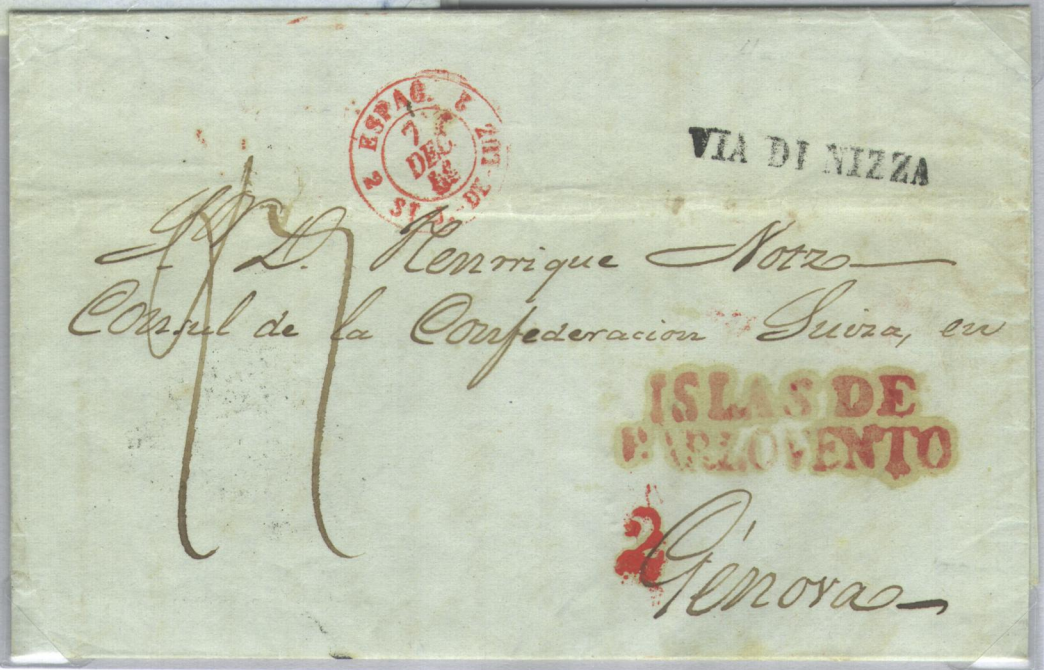 2 ESPAG. 2
ST J. DE LUZ 2
7
DEC
VIA DI NIZZA
Sr. D. Henrrique Notz
Consul de la Confederacion Suiza, en
ISLAS DE
BARLOVENTO
2
Génova